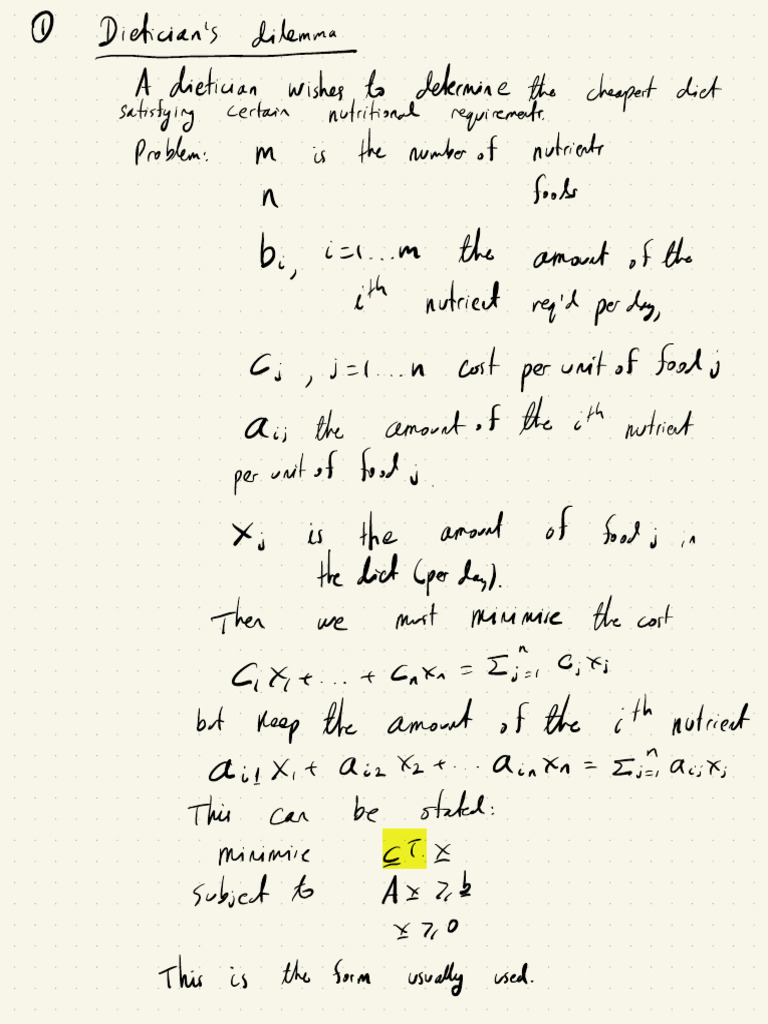 ① Dietician's dilemma
A dietician wishes to determine the cheapest diet
satisfying certain nutritional requirements.
Problem: m is the number of nutrients
n foods
bᵢ, i=1...m the amount of the
iᵗʰ nutrient req'd per day,
cⱼ, j=1...n cost per unit of food j
aᵢⱼ the amount of the iᵗʰ nutrient
per unit of food j.
xⱼ is the amount of food j in
the diet (per day).
Then we must minimise the cost
c₁x₁+...+cₙxₙ = Σⱼ₌₁ⁿ cⱼxⱼ
but keep the amount of the iᵗʰ nutrient
aᵢ₁x₁+ aᵢ₂x₂+... aᵢₙxₙ = Σⱼ₌₁ⁿ aᵢⱼxⱼ
This can be stated:
minimise c̲ᵀ. x̲
subject to Ax̲ ≥ b̲
x̲ ≥ 0
This is the form usually used.